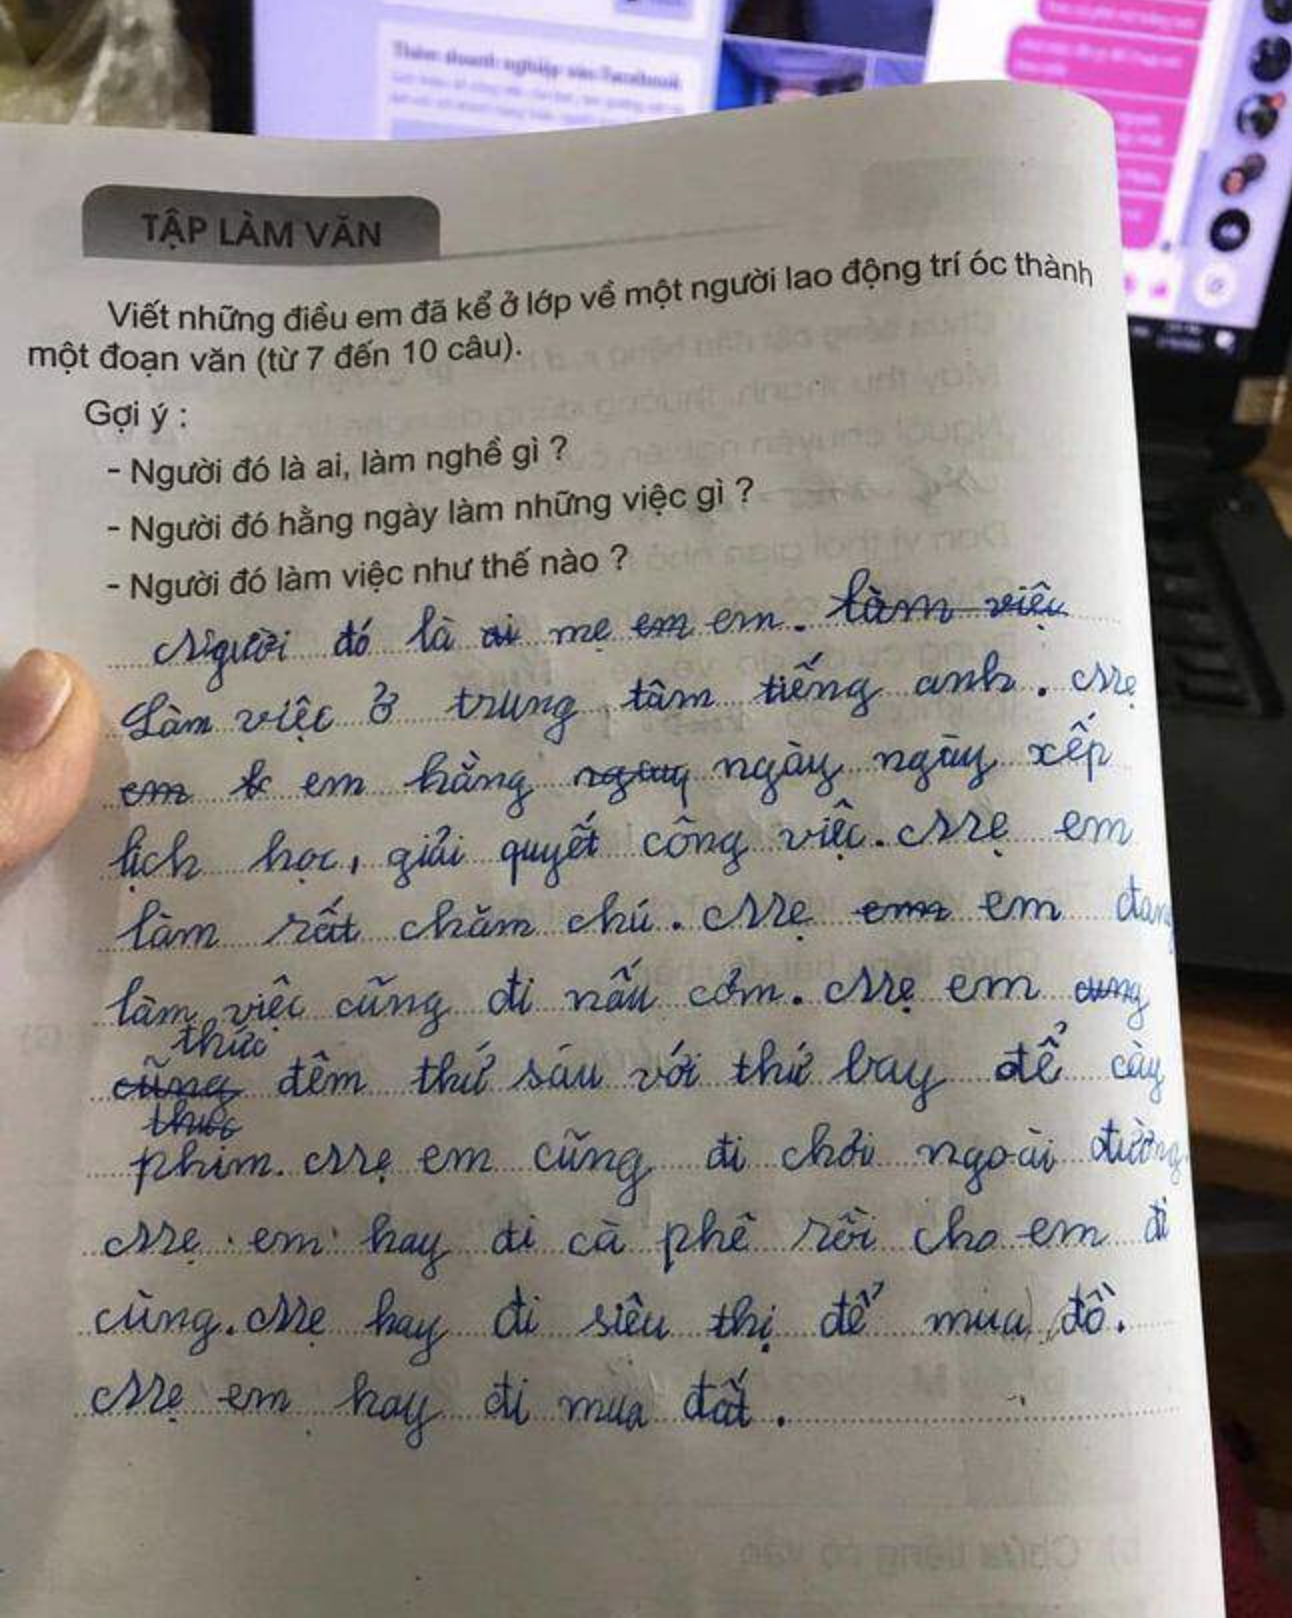 Thêm doanh nghiệp vào Facebook
TẬP LÀM VĂN
Viết những điều em đã kể ở lớp về một người lao động trí óc thành
một đoạn văn (từ 7 đến 10 câu).
Gợi ý :
- Người đó là ai, làm nghề gì ?
- Người đó hằng ngày làm những việc gì ?
- Người đó làm việc như thế nào ?
Người đó là ai mẹ em em. làm việc
Làm việc ở trung tâm tiếng anh. Mẹ
em em hằng ngày ngày xếp
lịch học, giải quyết công việc. Mẹ em
làm rất chăm chú. Mẹ em em đang
làm việc cũng đi nấu cơm. Mẹ em cung
thức
cũng đêm thứ sáu với thứ bay để cày
thức
phim. Mẹ em cũng đi chơi ngoài đường
Mẹ em hay đi cà phê rồi cho em đi
cùng. Mẹ hay đi siêu thị để mua đồ.
Mẹ em hay đi mua đất.